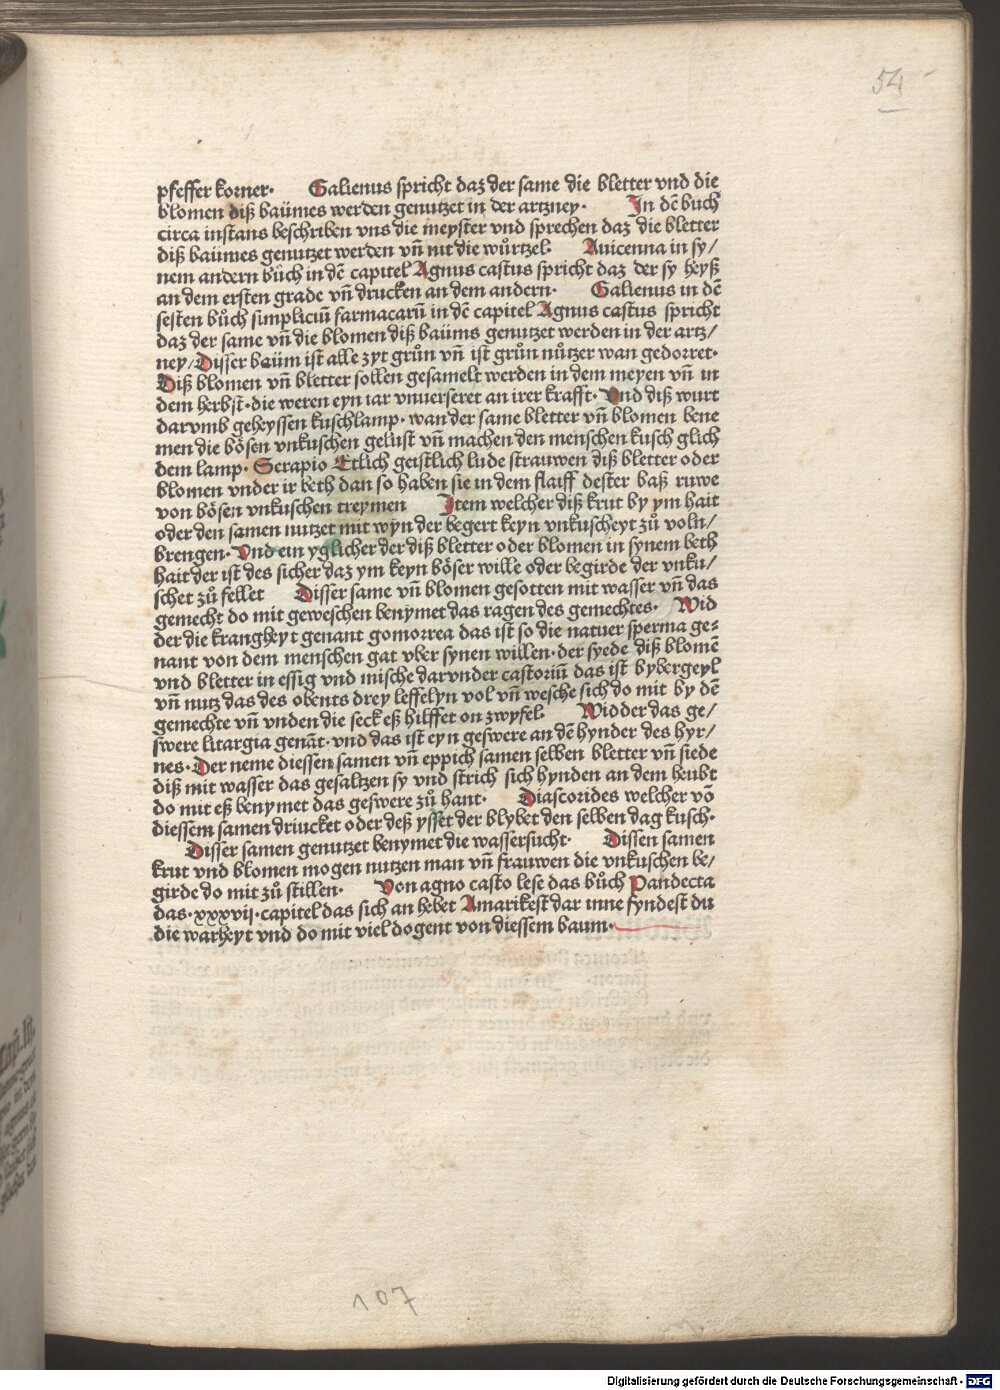 54
pfeffer korner· Galienus spricht daz der same die bletter vnd die
blomen diß baümes werden genutzet in der artzney· In dē buch
circa instans beschriben vns die meyster vnd sprechen daz die bletter
diß baumes genutzet werden vñ nit die wůrtzel· Auicenna in sy/
nem andern bůch in dē capitel Agnus castus spricht daz der sy heyß
an dem ersten grade vñ drucken an dem andern· Galienus in dē
sesten bůch simpliciū farmacarū in dē capitel Agnus castus spricht
daz der same vñ die blomen diß baüms genutzet werden in der artz/
ney/ Disser baüm ist alle zyt grůn vñ ist grůn nůtzer wan gedorret·
Diß blomen vñ bletter sollen gesamelt werden in dem meyen vñ in
dem herbst· die weren eyn iar vnuerseret an irer krafft· Vnd diß wurt
darvmb geheyssen kuschlamp· wan der same bletter vñ blomen bene
men die bősen vnkuschen gelust vñ machen den menschen kusch glich
dem lamp· Serapio Etlich geistlich lude strauwen diß bletter oder
blomen vnder ir beth dan so haben sie in dem flaiff dester baß ruwe
von bősen vnkuschen treymen Item welcher diß krut by ym hait
oder den samen nutzet mit wyn der begert keyn vnkuscheyt zů voln/
brengen· Vnd ein yglicher der diß bletter oder blomen in synem beth
hait der ist des sicher daz ym keyn bőser wille oder begirde der vnku/
schet zů fellet Disser same vñ blomen gesotten mit wasser vñ das
gemecht do mit geweschen benymet das ragen des gemechtes· Wid
der die krangheyt genant gomorrea das ist so die natuer sperma ge=
nant von dem menschen gat vber synen willen· der syede diß blomē
vnd bletter in essig vnd mische darvnder castoriū das ist bybergeyl
vñ nutz das des obents drey leffelyn vol vñ wesche sich do mit by dē
gemechte vñ vnden die seck eß hilffet on zwyfel· Widder das ge/
swere litargia genāt· vnd das ist eyn geswere an dē hynder des hyr/
nes· Der neme diessen samen vñ eppich samen selben bletter vñ siede
diß mit wasser das gesaltzen sy vnd strich sich hynden an dem heubt
do mit eß benymet das geswere zů hant· Diascorides welcher vō
diessem samen driucket oder deß ysset der blybet den selben dag kusch·
Disser samen genutzet benymet die wassersucht· Dissen samen
krut vnd blomen mogen nutzen man vñ frauwen die vnkuschen be/
girde do mit zů stillen· Von agno casto lese das bůch Pandecta
das·xxxvij·capitel das sich an hebet Amarikest dar inne fyndest du
die warheyt vnd do mit viel dogent von diessem baum·
107
Digitalisierung gefördert durch die Deutsche Forschungsgemeinschaft - DFG